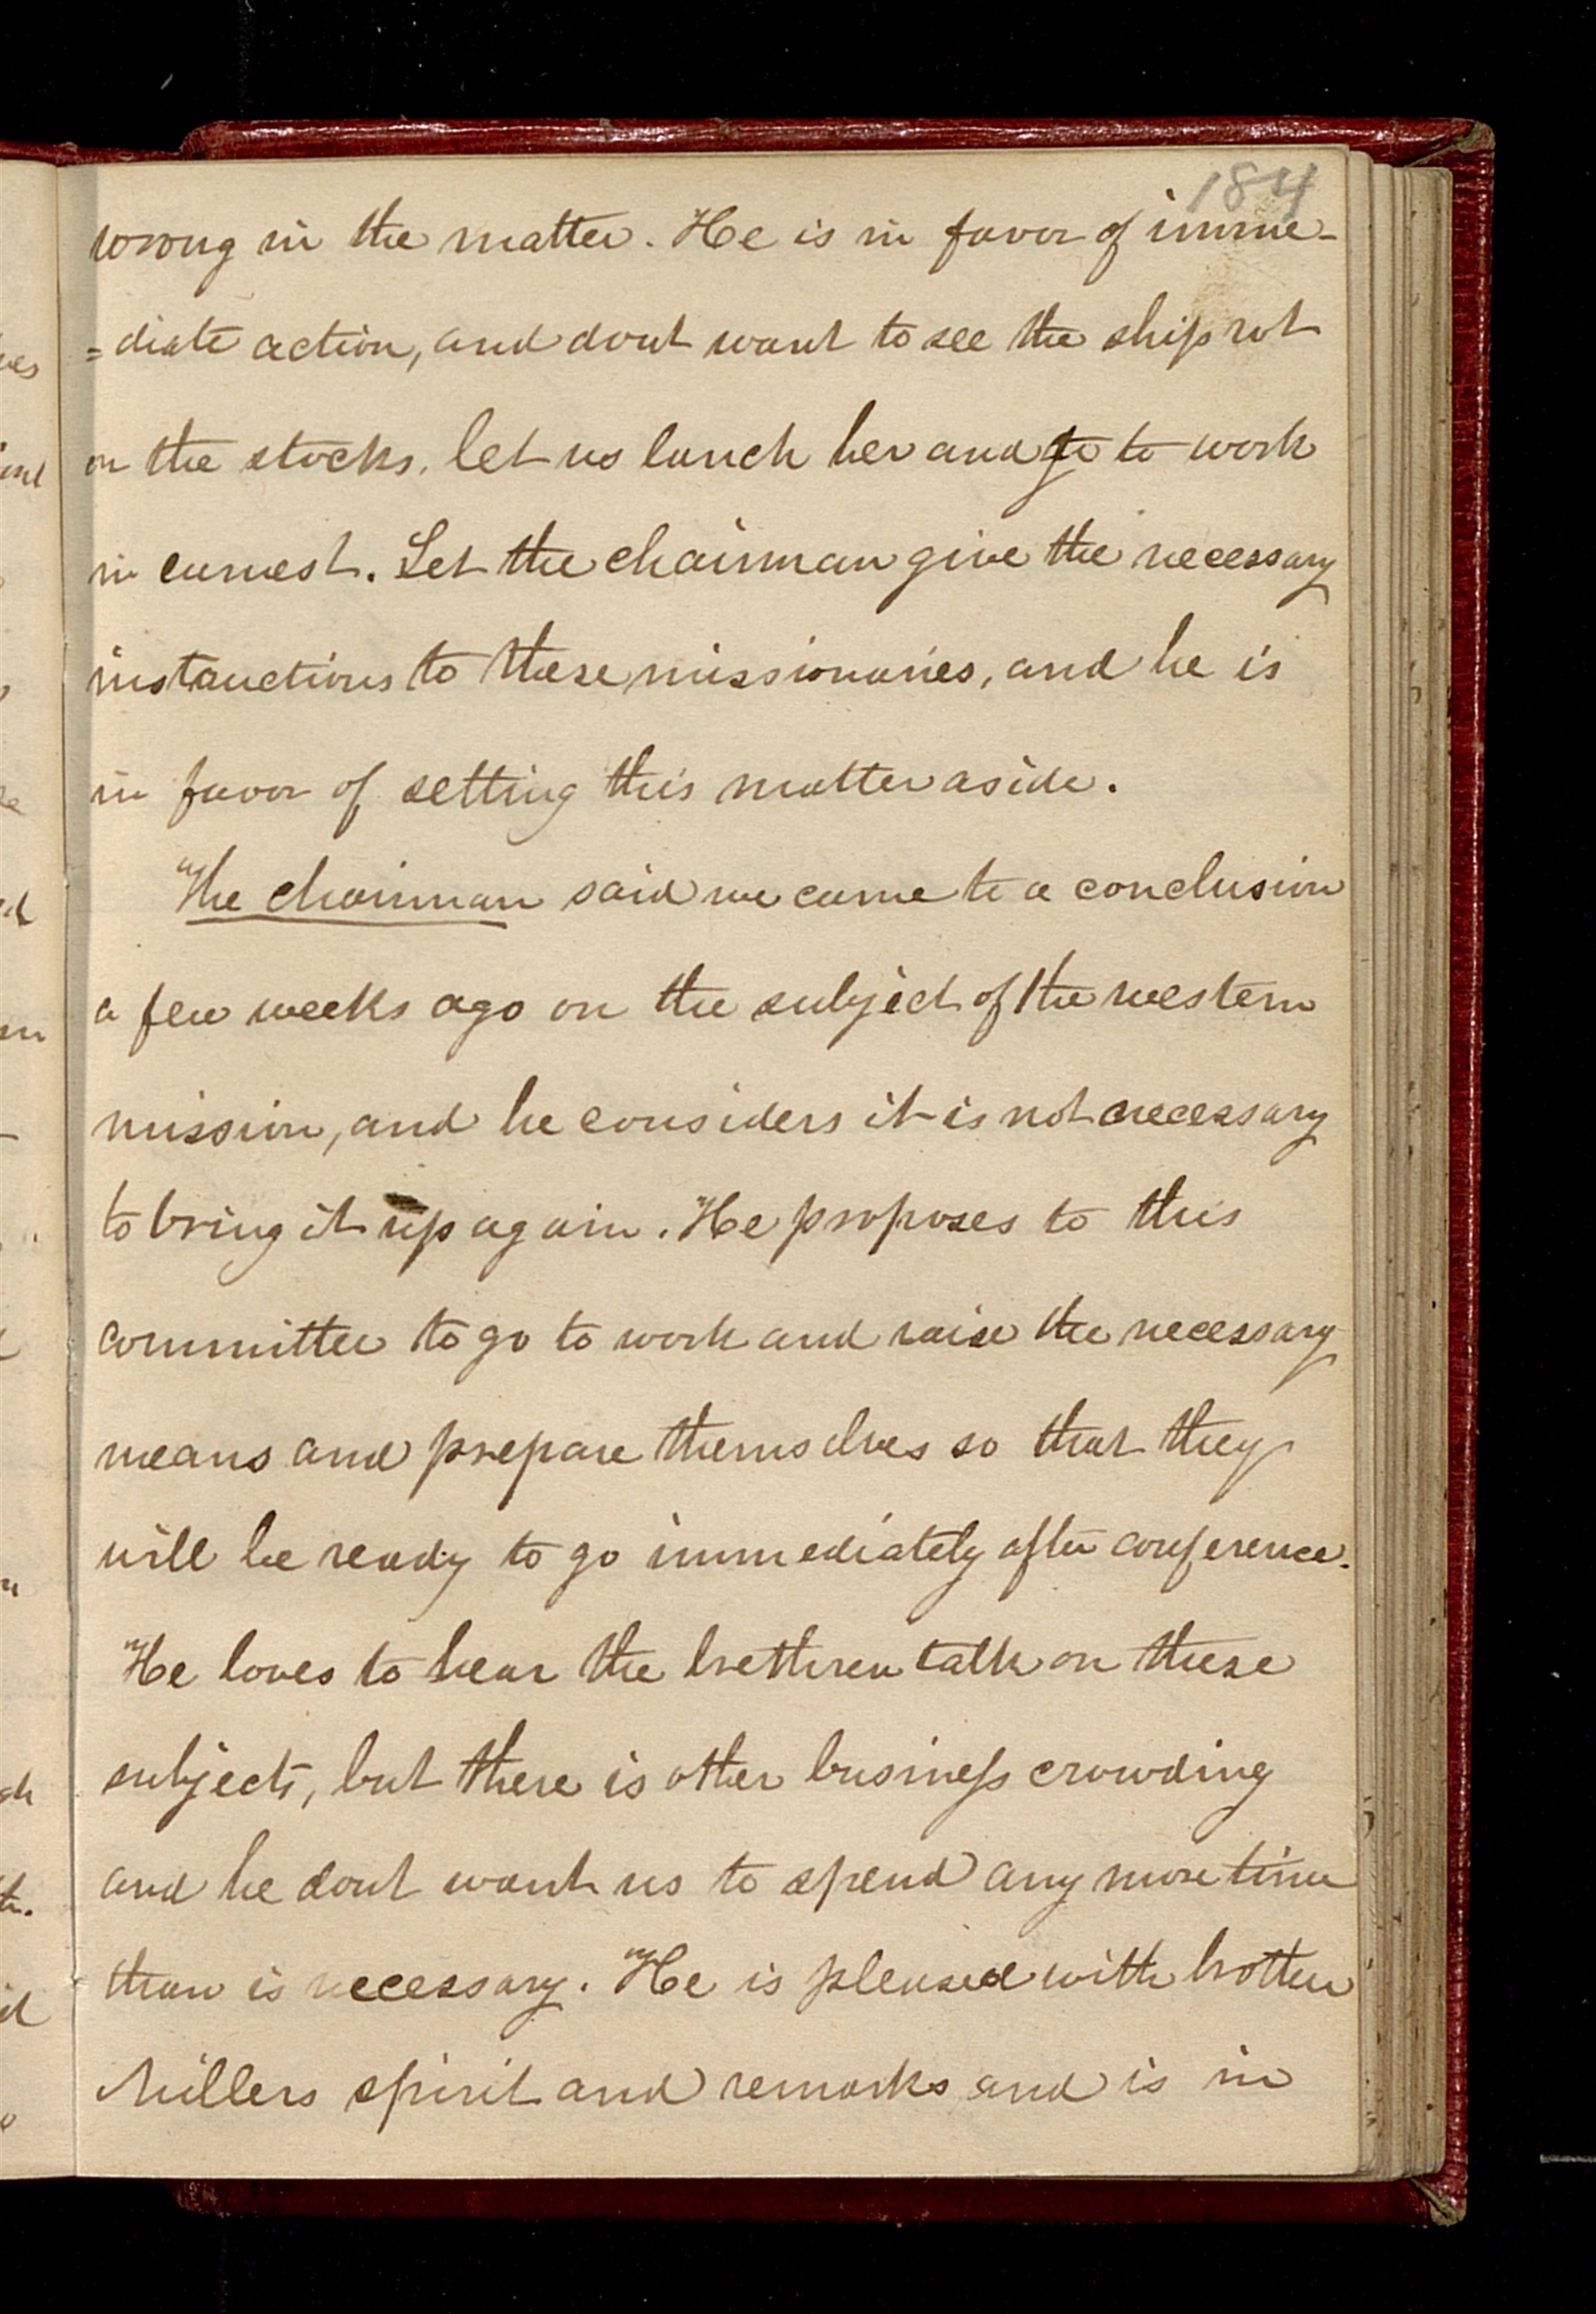 184
wrong in the matter. He is in favor of imme-
=diate action, and dont want to see the ship rot
on the stocks, let us lunch her and go to work
in earnest. Let the chairman give the necessary
instructions to these missionaries, and he is
in favor of setting this matter aside.
The chairman said we came to a conclusion
a few weeks ago on the subject of the western
mission, and he considers it is not necessary
to bring it up again. He proposes to this
committee to go to work and raise the necessary
means and prepare themselves so that they
will be ready to go immediately after conference.
He loves to hear the brethren talk on these
subjects, but there is other business crowding
and he dont want us to spend any more time
than is necessary. He is pleased with brother
Millers spirit and remarks and is in